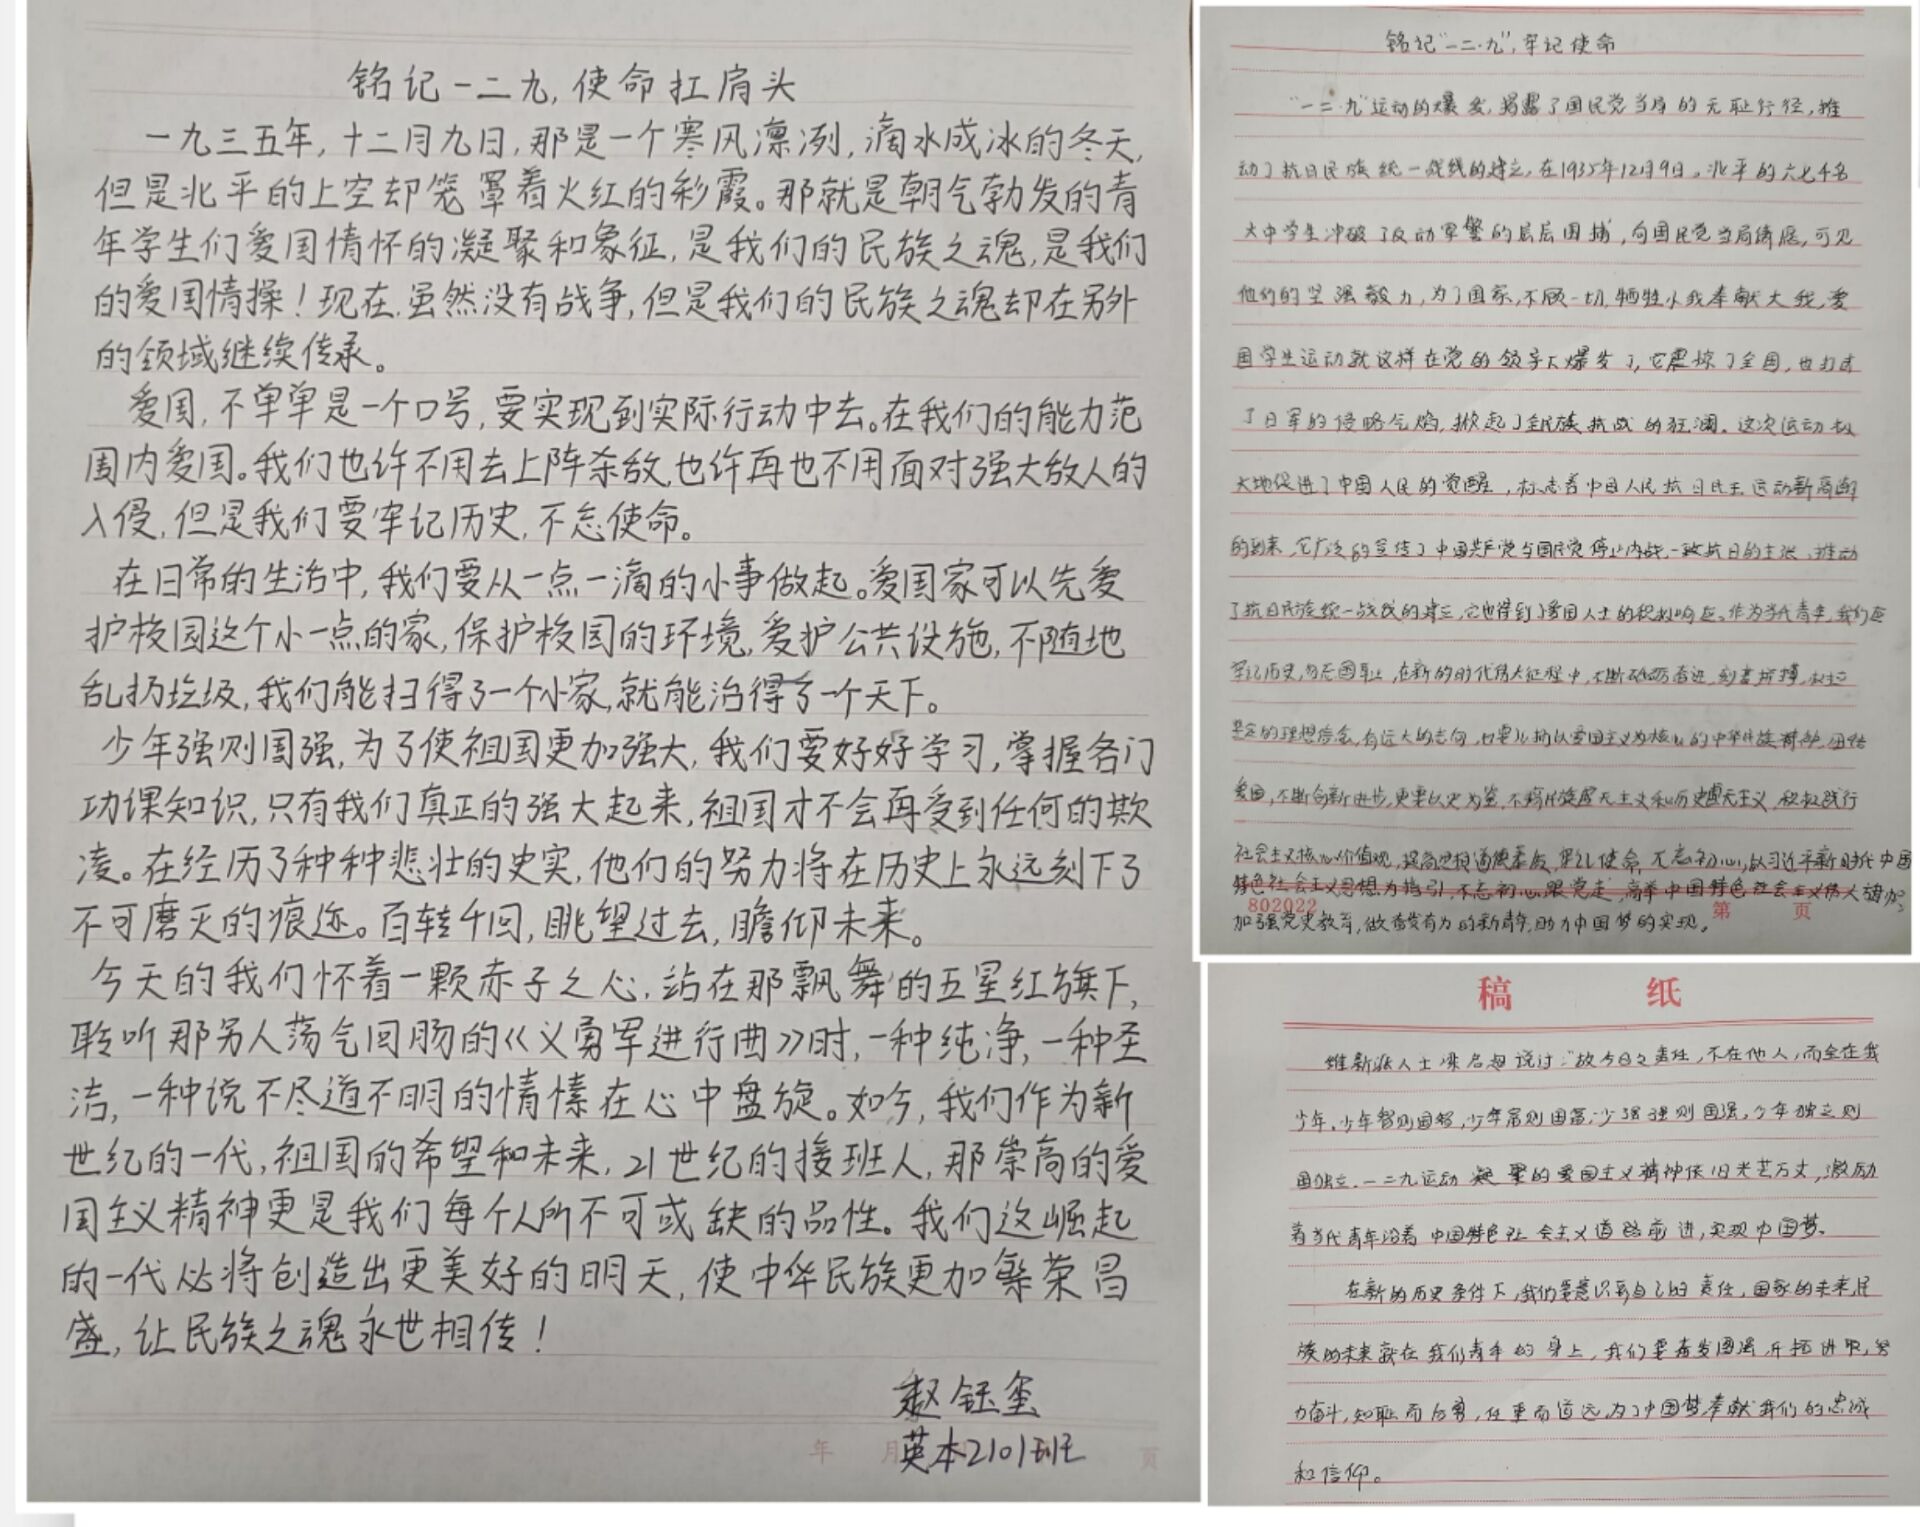 铭记一二九,使命扛肩头
一九三五年,十二月九日,那是一个寒风凛冽,滴水成冰的冬天,
但是北平的上空却笼罩着火红的彩霞。那就是朝气勃发的青
年学生们爱国情怀的凝聚和象征,是我们的民族之魂,是我们
的爱国情操!现在,虽然没有战争,但是我们的民族之魂却在另外
的领域继续传承。
爱国,不单单是一个口号,要实现到实际行动中去。在我们的能力范
围内爱国。我们也许不用去上阵杀敌,也许再也不用面对强大敌人的
入侵,但是我们要牢记历史,不忘使命。
在日常的生活中,我们要从一点一滴的小事做起。爱国家可以先爱
护校园这个小一点的家,保护校园的环境,爱护公共设施,不随地
乱扔垃圾,我们能扫得了一个小家,就能治得了一个天下。
少年强则国强,为了使祖国更加强大,我们要好好学习,掌握各门
功课知识,只有我们真正的强大起来,祖国才不会再受到任何的欺
凌。在经历了种种悲壮的史实,他们的努力将在历史上永远刻下了
不可磨灭的痕迹。百转千回,眺望过去,瞻仰未来。
今天的我们怀着一颗赤子之心,站在那飘舞的五星红旗下,
聆听那另人荡气回肠的《义勇军进行曲》时,一种纯净,一种圣
洁,一种说不尽道不明的情愫在心中盘旋。如今,我们作为新
世纪的一代,祖国的希望和未来,21世纪的接班人,那崇高的爱
国主义精神更是我们每个人所不可或缺的品性。我们这崛起
的一代必将创造出更美好的明天,使中华民族更加繁荣昌
盛,让民族之魂永世相传!
赵钰玺
英本2101班
年 月 页
铭记"一二·九",牢记使命
"一二·九"运动的爆发,揭露了国民党当局的无耻行径,推
动了抗日民族统一战线的建立,在1935年12月9日,北平的六七千名
大中学生冲破了反动军警的层层围捕,向国民党当局请愿,可见
他们的坚强毅力,为了国家,不顾一切,牺牲小我奉献大我,爱
国学生运动就这样在党的领导下爆发了,它震惊了全国,也打击
了日军的侵略气焰,掀起了全民族抗战的狂澜。这次运动极
大地促进了中国人民的觉醒,标志着中国人民抗日民主运动新高潮
的到来,它广泛的宣传了中国共产党与国民党停止内战,一致抗日的主张,推动
了抗日民族统一战线的建立,它也得到了爱国人士的积极响应。作为当代青年,我们应
牢记历史,勿忘国耻,在新的时代伟大征程中,不断砥砺奋进,刻苦拼搏,树立
坚定的理想信念,有远大的志向,以爱国主义为核心的中华民族精神,团结
爱国,不断创新进步,更要以史为鉴,不搞民族虚无主义和历史虚无主义,积极践行
社会主义核心价值观,提高思想道德素质,牢记使命,不忘初心,以习近平新时代中国
特色社会主义思想为指引,不忘初心跟党走,高举中国特色社会主义伟大旗帜,
802022 第 页
加强党史教育,做奋发有为的新青年,助力中国梦的实现。
稿 纸
维新派人士梁启超说过:"故今日之责任,不在他人,而全在我
少年,少年智则国智,少年富则国富,少强强则国强,少年独立则
国独立,一二九运动凝聚的爱国主义精神依旧光芒万丈,激励
着当代青年沿着中国特色社会主义道路前进,实现中国梦。
在新的历史条件下,我们要意识到自己的责任,国家的未来,民
族的未来就在我们青年的身上,我们要奋发图强,开拓进取,努
力奋斗,知耻而后勇,任重而道远,为了中国梦奉献我们的忠诚
和信仰。